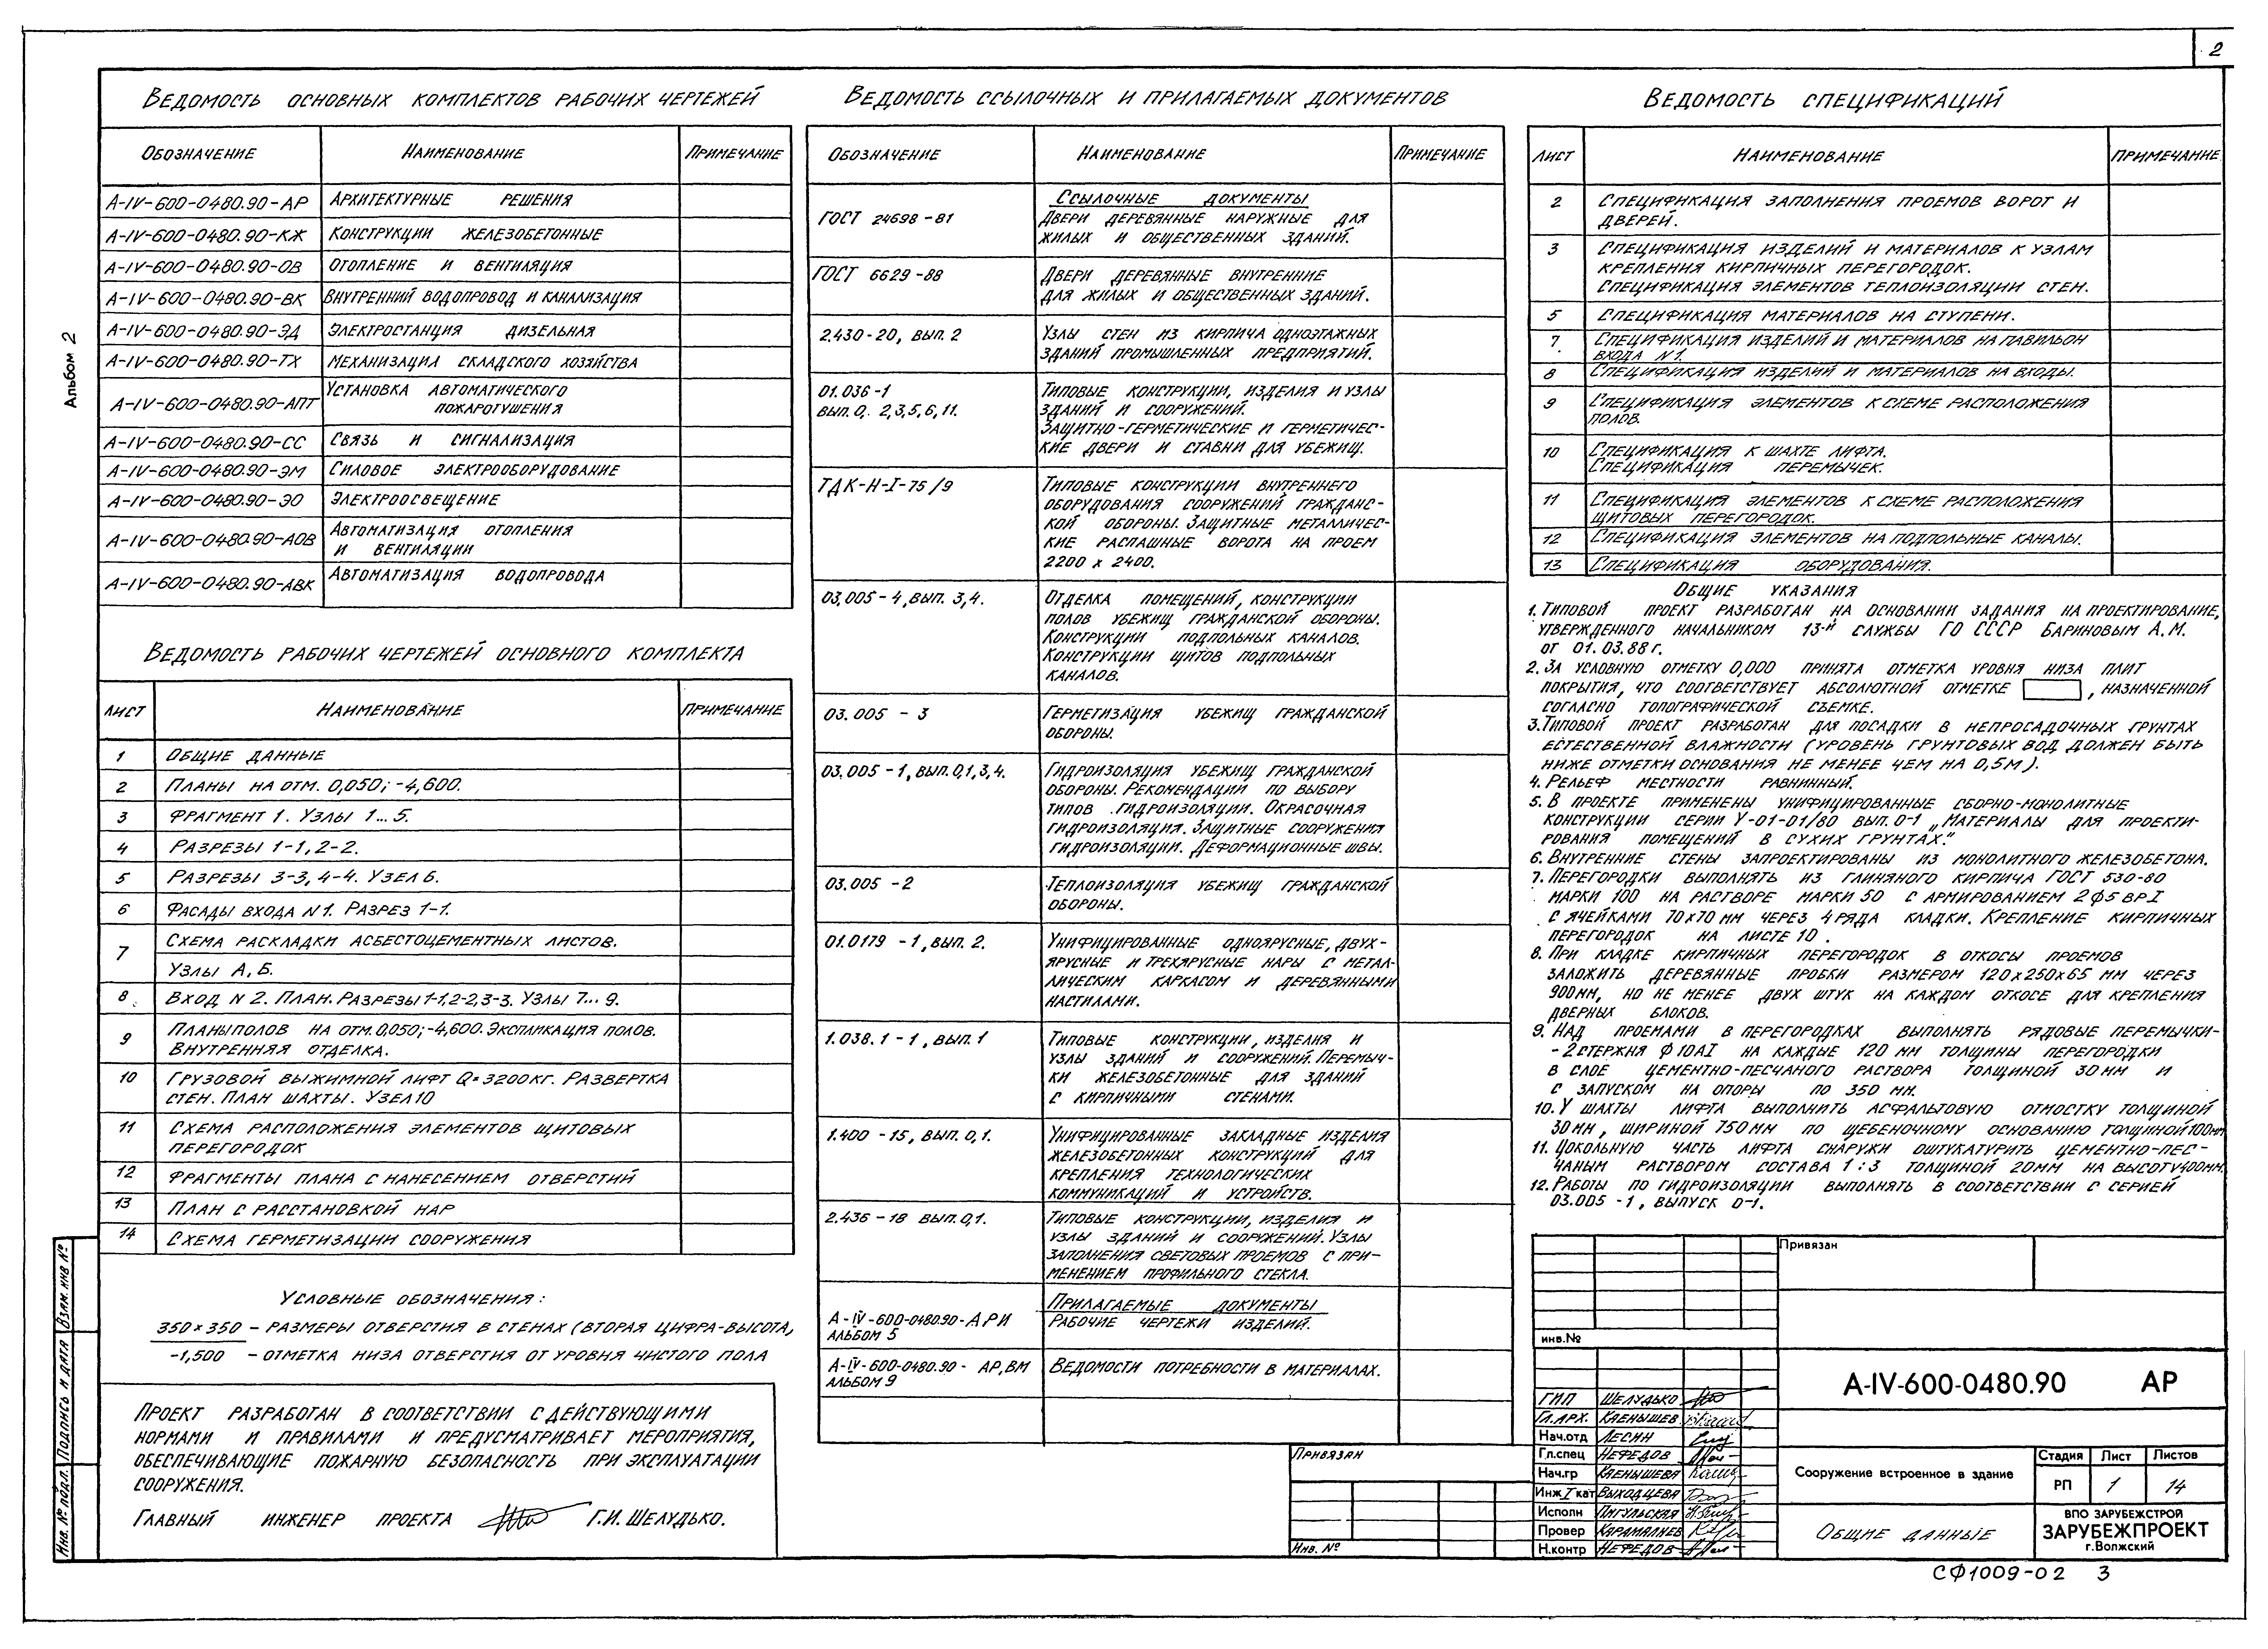 2
Альбом 2
Ведомость основных комплектов рабочих чертежей
Обозначение Наименование Примечание
А-IV-600-0480.90-АР Архитектурные решения
А-IV-600-0480.90-КЖ Конструкции железобетонные
А-IV-600-0480.90-ОВ Отопление и вентиляция
А-IV-600-0480.90-ВК Внутренний водопровод и канализация
А-IV-600-0480.90-ЭД Электростанция дизельная
А-IV-600-0480.90-ТХ Механизация складского хозяйства
А-IV-600-0480.90-АПТ Установка автоматического
пожаротушения
А-IV-600-0480.90-СС Связь и сигнализация
А-IV-600-0480.90-ЭМ Силовое электрооборудование
А-IV-600-0480.90-ЭО Электроосвещение
А-IV-600-0480.90-АОВ Автоматизация отопления
и вентиляции
А-IV-600-0480.90-АВК Автоматизация водопровода
Ведомость рабочих чертежей основного комплекта
Лист Наименование Примечание
1 Общие данные
2 Планы на отм. 0,050; -4,600.
3 Фрагмент 1. Узлы 1...5.
4 Разрезы 1-1, 2-2.
5 Разрезы 3-3, 4-4. Узел 6.
6 Фасады входа N1. Разрез 1-1.
7 Схема раскладки асбестоцементных листов.
Узлы А, Б.
8 Вход N 2. План. Разрезы 1-1, 2-2, 3-3. Узлы 7...9.
9 Планы полов на отм. 0,050; -4,600. Экспликация полов.
Внутренняя отделка.
10 Грузовой выжимной лифт Q=3200кг. Развертка
стен. План шахты. Узел 10
11 Схема расположения элементов щитовых
перегородок
12 Фрагменты плана с нанесением отверстий
13 План с расстановкой нар
14 Схема герметизации сооружения
Условные обозначения:
350×350 – размеры отверстия в стенах (вторая цифра-высота,
-1,500 – отметка низа отверстия от уровня чистого пола
Проект разработан в соответствии с действующими
нормами и правилами и предусматривает мероприятия,
обеспечивающие пожарную безопасность при эксплуатации
сооружения.
Главный инженер проекта Г.И. Шелудько.
Инв. № подл. Подпись и дата Взам. инв №
Ведомость ссылочных и прилагаемых документов
Обозначение Наименование Примечание
Ссылочные документы
ГОСТ 24698-81 Двери деревянные наружные для
жилых и общественных зданий.
ГОСТ 6629-88 Двери деревянные внутренние
для жилых и общественных зданий.
2.430-20, вып. 2 Узлы стен из кирпича одноэтажных
зданий промышленных предприятий.
01.036-1 Типовые конструкции, изделия и узлы
вып. 0, 2,3,5,6,11. зданий и сооружений.
Защитно-герметические и герметичес-
кие двери и ставни для убежищ.
ТДК-Н-I-75/9 Типовые конструкции внутреннего
оборудования сооружений гражданс-
кой обороны. Защитные металличес-
кие распашные ворота на проем
2200 х 2400.
03.005-4, вып. 3,4. Отделка помещений, конструкции
полов убежищ гражданской обороны.
Конструкции подпольных каналов.
Конструкции щитов подпольных
каналов.
03.005 - 3 Герметизация убежищ гражданской
обороны.
03.005-1, вып. 0,1,3,4. Гидроизоляция убежищ гражданской
обороны. Рекомендации по выбору
типов гидроизоляции. Окрасочная
гидроизоляция. Защитные сооружения
гидроизоляции. Деформационные швы.
03.005 - 2 Теплоизоляция убежищ гражданской
обороны.
01.0179 - 1, вып. 2. Унифицированные одноярусные, двух-
ярусные и трехярусные нары с метал-
лическим каркасом и деревянными
настилами.
1.038.1-1, вып. 1 Типовые конструкции, изделия и
узлы зданий и сооружений. Перемыч-
ки железобетонные для зданий
с кирпичными стенами.
1.400 - 15, вып. 0,1. Унифицированные закладные изделия
железобетонных конструкций для
крепления технологических
коммуникаций и устройств.
2.436 - 18 вып. 0,1. Типовые конструкции, изделия и
узлы зданий и сооружений. Узлы
заполнения световых проемов с при-
менением профильного стекла.
Прилагаемые документы
А-IV-600-0480.90-АРИ Рабочие чертежи изделий.
альбом 5
А-IV-600-0480.90- АР, ВМ Ведомости потребности в материалах.
альбом 9
Привязан
Инв. №
Ведомость спецификаций
Лист Наименование Примечание
2 Спецификация заполнения проемов ворот и
дверей.
3 Спецификация изделий и материалов к узлам
крепления кирпичных перегородок.
Спецификация элементов теплоизоляции стен.
5 Спецификация материалов на ступени.
7 Спецификация изделий и материалов на павильон
входа N1.
8 Спецификация изделий и материалов на входы.
9 Спецификация элементов к схеме расположения
полов.
10 Спецификация к шахте лифта.
Спецификация перемычек.
11 Спецификация элементов к схеме расположения
щитовых перегородок.
12 Спецификация элементов на подпольные каналы.
13 Спецификация оборудования.
Общие указания
1. Типовой проект разработан на основании задания на проектирование,
утвержденного начальником 13-й службы ГО СССР Бариновым А.М.
от 01.03.88 г.
2. За условную отметку 0,000 принята отметка уровня низа плит
покрытия, что соответствует абсолютной отметке , назначенной
согласно топографической съемке.
3. Типовой проект разработан для посадки в непросадочных грунтах
естественной влажности (уровень грунтовых вод должен быть
ниже отметки основания не менее чем на 0,5м).
4. Рельеф местности равнинный.
5. В проекте применены унифицированные сборно-монолитные
конструкции серии У-01-01/80 вып. 0-1 „Материалы для проекти-
рования помещений в сухих грунтах."
6. Внутренние стены запроектированы из монолитного железобетона.
7. Перегородки выполнять из глиняного кирпича ГОСТ 530-80
марки 100 на растворе марки 50 с армированием 2ф5 ВрI
с ячейками 70х70 мм через 4 ряда кладки. Крепление кирпичных
перегородок на листе 10.
8. При кладке кирпичных перегородок в откосы проемов
заложить деревянные пробки размером 120х250х65 мм через
900мм, но не менее двух штук на каждом откосе для крепления
дверных блоков.
9. Над проемами в перегородках выполнять рядовые перемычки-
- 2 стержня ф10АI на каждые 120 мм толщины перегородки
в слое цементно-песчаного раствора толщиной 30 мм и
с запуском на опоры по 350 мм.
10. У шахты лифта выполнить асфальтовую отмостку толщиной
30 мм, шириной 750 мм по щебеночному основанию толщиной 100мм
11. Цокольную часть лифта снаружи оштукатурить цементно-пес-
чаным раствором состава 1:3 толщиной 20мм на высоту 400мм.
12. Работы по гидроизоляции выполнять в соответствии с серией
03.005 - 1, выпуск 0-1.
Привязан
инв.№
ГИП Шелудько
Гл.арх. Каенышев
Нач.отд Лесин
Гл.спец Нефедов
Нач.гр Каенышева
Инж I кат Выходцева
Исполн Пигульская
Провер
Н.контр Нефедов
А-IV-600-0480.90 АР
Сооружение встроенное в здание
Стадия Лист Листов
РП 1 14
Общие данные
ВПО ЗАРУБЕЖСТРОЙ
ЗАРУБЕЖПРОЕКТ
г.Волжский
СФ1009-02 3